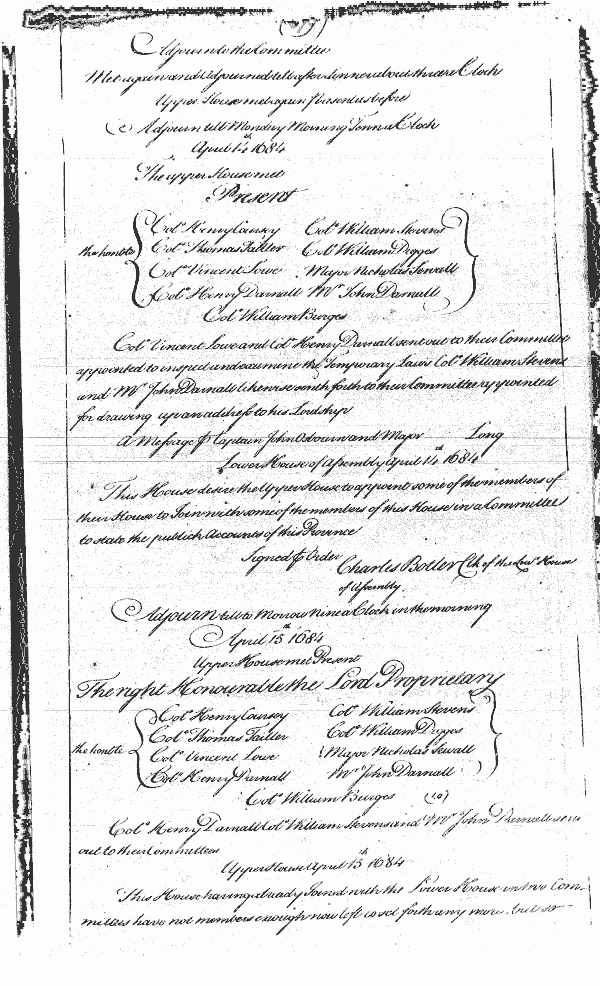 (39)
Adjourn to the Committee
Met again and Adjourned till after dinner about three a Clock
Upper House met again Present as before
Adjourn till Monday Morning Tenn a Clock
April 14th 1684
The upper House met
Present
Colo Henry Coursey Colo William Stevens
the honble Colo Thomas Tailler Colo William Digges
Colo Vincent Lowe Major Nicholas Sewall
Colo Henry Darnall Mr John Darnall
Colo William Burges
Colo Vincent Lowe and Colo Henry Darnall sent out to their Committee
appointed to inspect and examine the Temporary Laws Colo William Stevens
and Mr John Darnall likewise sent forth to their Committee appointed
for drawing up an address to his Lordship
A Message ⅌ Captain John Osbourn and Major Long
Lower House of Assembly April 14th 1684
This House desire the Upper House to appoint some of the members of
their House to Join with some of the members of this House in a Committee
to state the publick Accounts of this Province
Signed ⅌ Order
Charles Boteler Clk of the Lowr House
of Assembly
Adjourn till to Morrow Nine a Clock in the morning
April 15th 1684
Upper House met Present
The right Honourable the Lord Proprietary
Colo Henry Coursey Colo William Stevens
Colo Thomas Tailler Colo William Digges
the honble Colo Vincent Lowe Major Nicholas Sewall
Colo Henry Darnall Mr John Darnall
Colo William Burges (40)
Colo Henry Darnall Colo William Stevens and Mr John Darnall sent
out to their Committees
Upper House April 15th 1684
This House having already Joined with the Lower House in two Com-
mittees have not members enough now left to set forth any more, but so